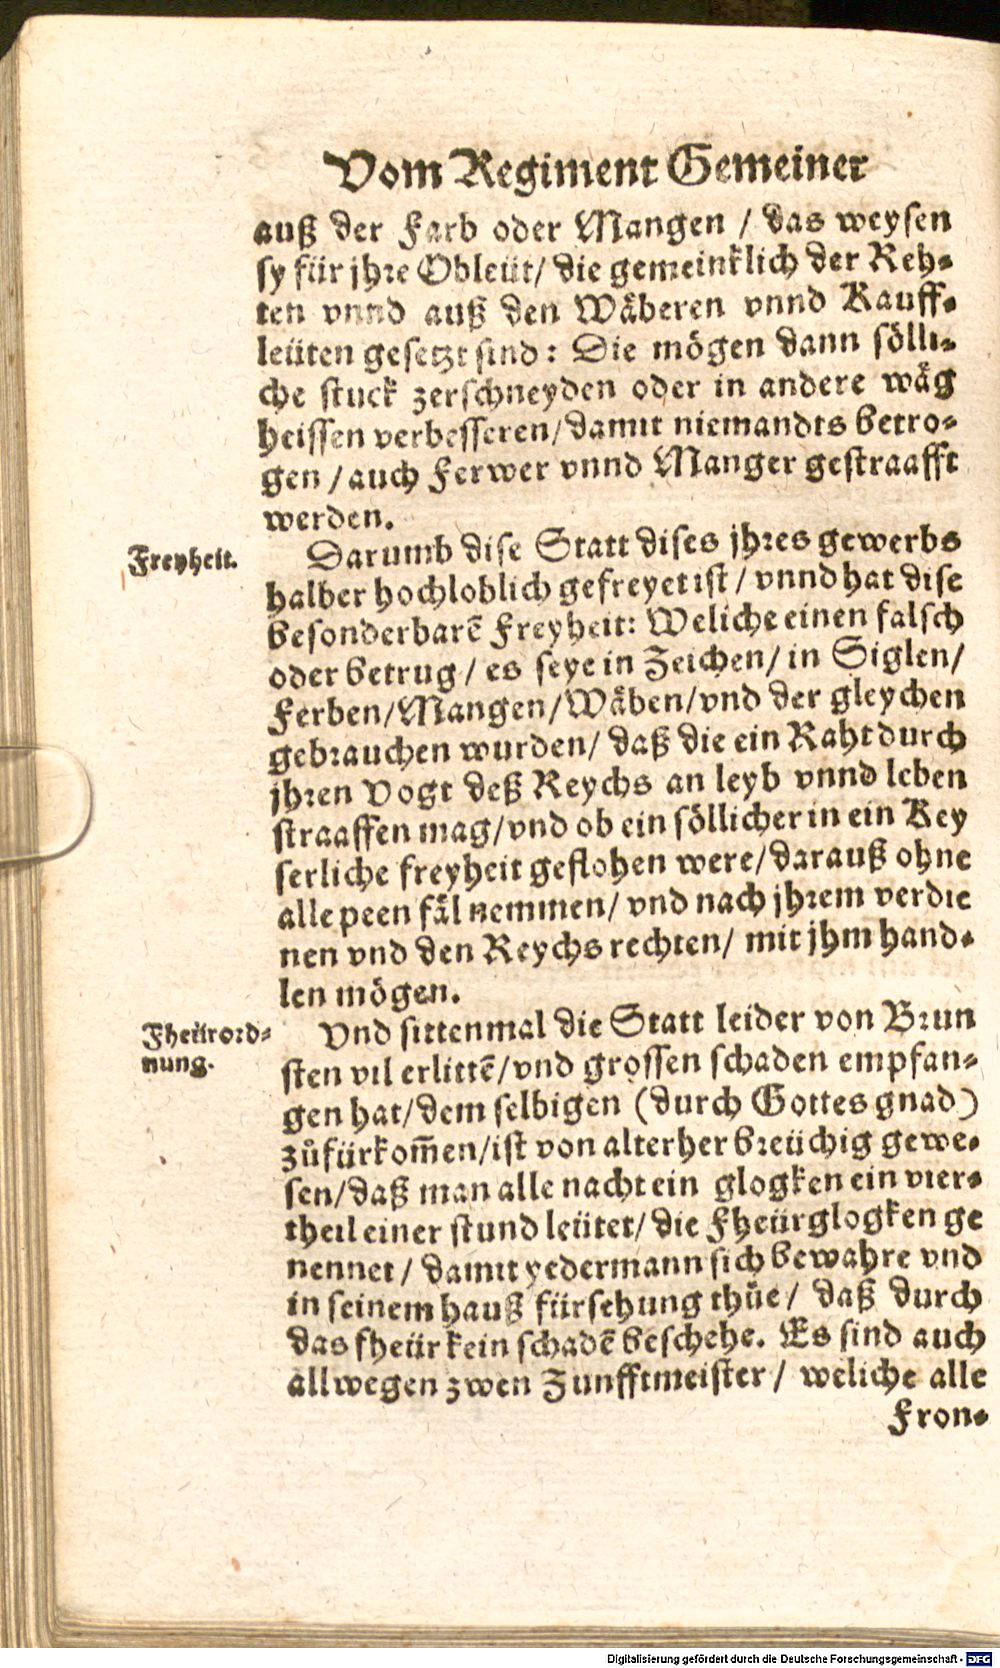 Vom Regiment Gemeiner
auß der Farb oder Mangen / das weysen
sy für jhre Obleüt / die gemeinklich der Reh-
ten vnnd auß den Wäberen vnnd Kauff-
leüten gesetzt sind: Die mögen dann sölli-
che stuck zerschneyden oder in andere wäg
heissen verbesseren / damit niemandts betro-
gen / auch Ferwer vnnd Manger gestraafft
werden.
Freyheit.
Darumb dise Statt dises jhres gewerbs
halber hochloblich gefreyet ist / vnnd hat dise
besonderbarē Freyheit: Weliche einen falsch
oder betrug / es seye in Zeichen / in Siglen /
Ferben / Mangen / Wäben / vnd der gleychen
gebrauchen wurden / daß die ein Raht durch
jhren Vogt deß Reychs an leyb vnnd leben
straaffen mag / vnd ob ein söllicher in ein Key
serliche freyheit geflohen were / darauß ohne
alle peen fäl nemmen / vnd nach jhrem verdie
nen vnd den Reychs rechten / mit jhm hand-
len mögen.
Fheürord-
nung.
Vnd sittenmal die Statt leider von Brun
sten vil erlittē / vnd grossen schaden empfan-
gen hat / dem selbigen (durch Gottes gnad)
zůfürkom̄en / ist von alterher breüchig gewe-
sen / daß man alle nacht ein glogken ein vier-
theil einer stund leütet / die Fheürglogken ge
nennet / damit yedermann sich bewahre vnd
in seinem hauß fürsehung thüe / daß durch
das fheür kein schadē beschehe. Es sind auch
allwegen zwen Zunfftmeister / weliche alle
Fron-
Digitalisierung gefördert durch die Deutsche Forschungsgemeinschaft - DFG